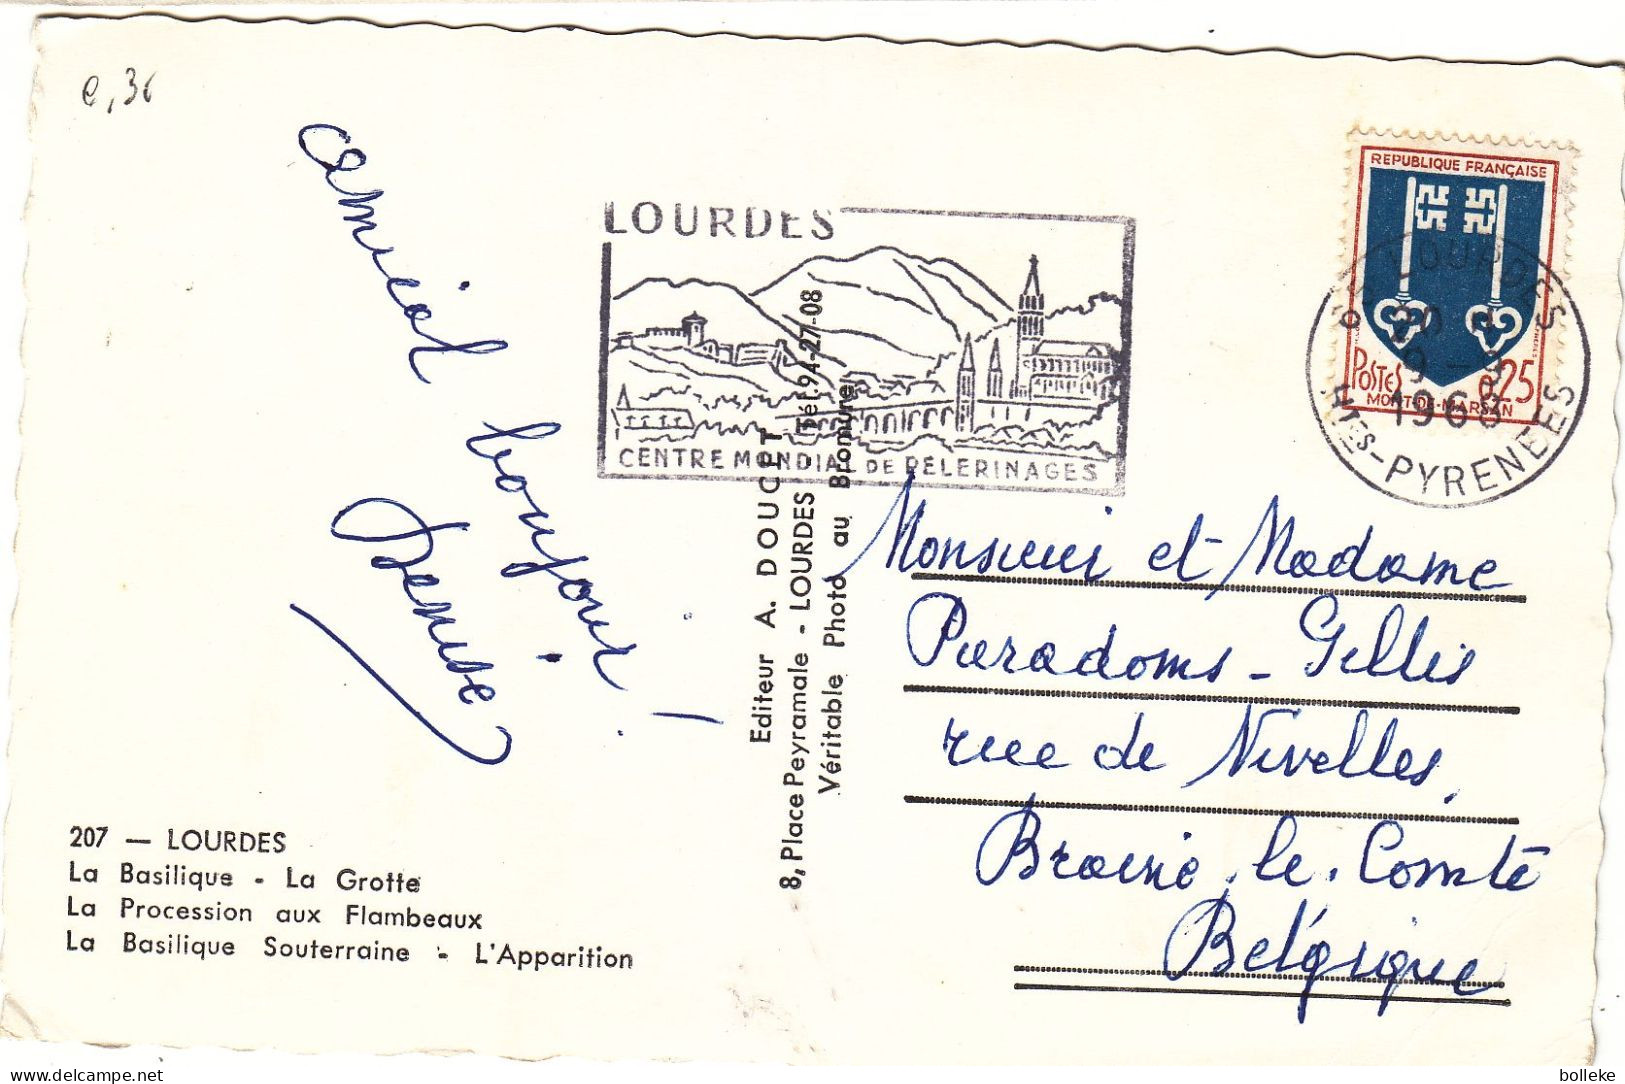 amical bonjour !
Denise
207 — LOURDES
La Basilique - La Grotte
La Procession aux Flambeaux
La Basilique Souterraine - L'Apparition
LOURDES
CENTRE MONDIAL DE PELERINAGES
Editeur A. DOUCET
8, Place Peyramale - LOURDES - Tél. 94-27-08
Véritable Photo au Bromure
REPUBLIQUE FRANÇAISE
POSTES 0,25
MONT-DE-MARSAN
LOURDES
1968
HTES-PYRENEES
Monsieur et Madame
Paradoms - Gillis
rue de Nivelles,
Braine-le-Comte
Belgique
bolleke